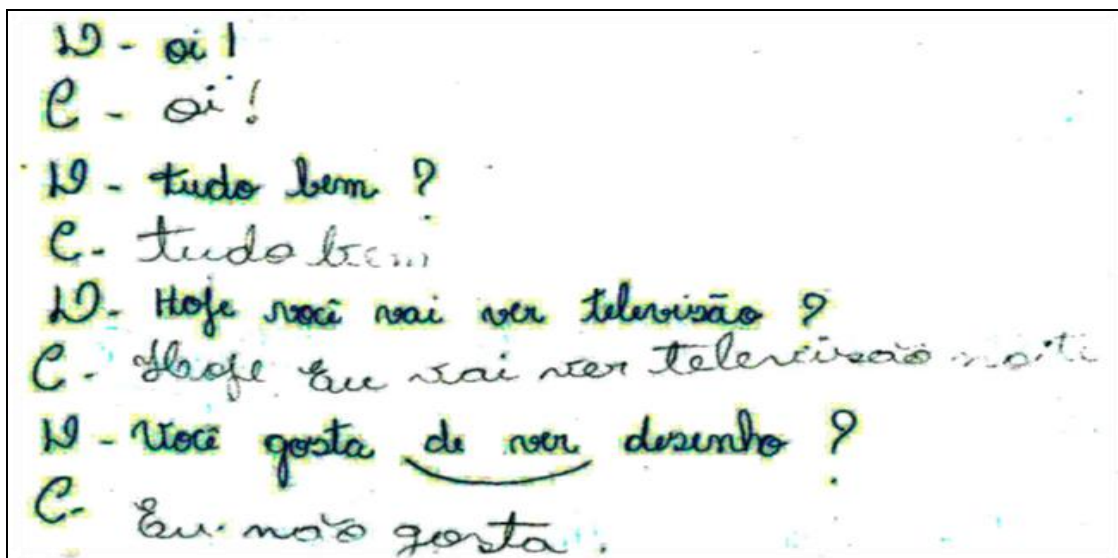 D - oi!
C - oi!
D - tudo bem?
C - tudo bem
D - Hoje você vai ver televisão?
C - Hoje Eu vai ver televisão noite
D - Você gosta de ver desenho?
C - Eu não gosta.